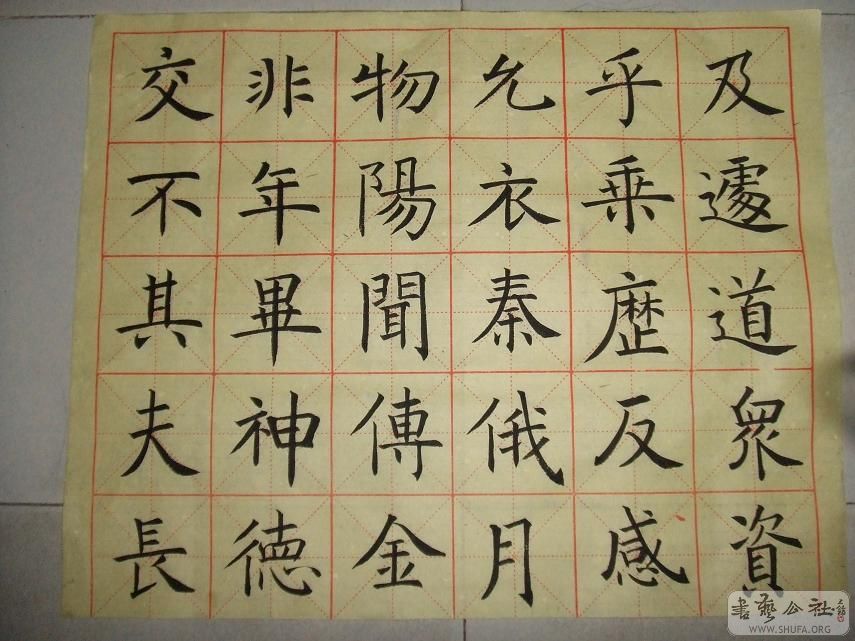 及遽道眾資
乎乘歴反感
允衣秦俄月
物陽聞傳金
非年畢神徳
交不其夫長
書藝公社
WWW.SHUFA.ORG